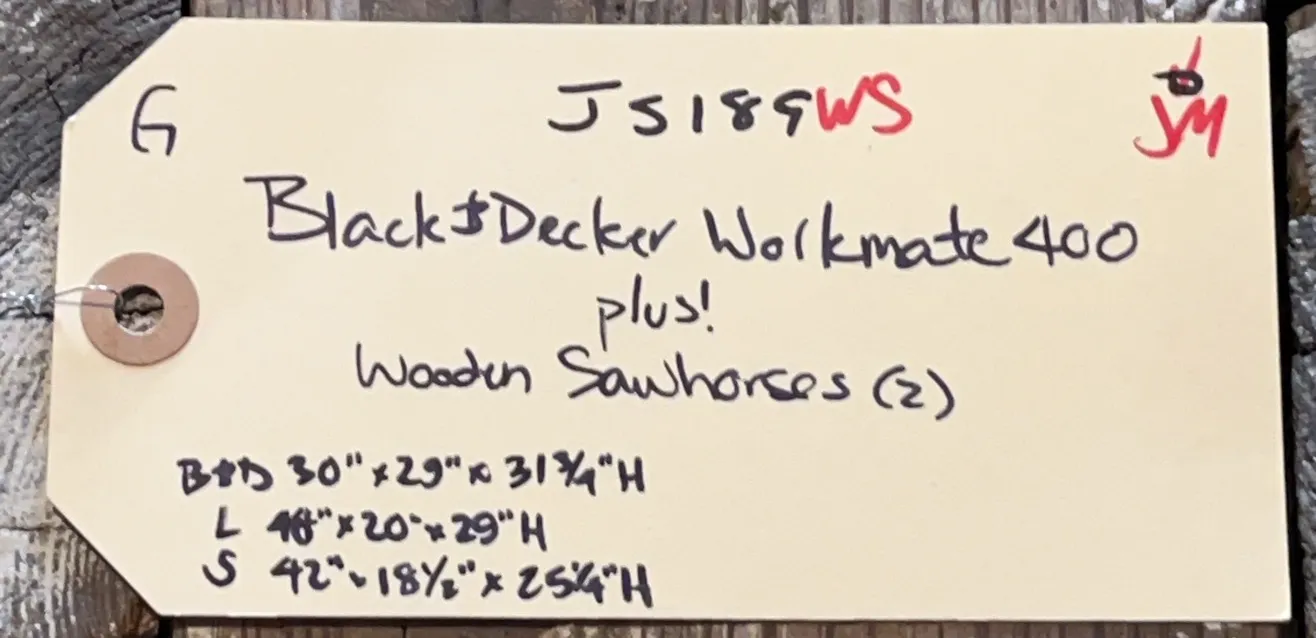 G JS189WS JM
Black & Decker Workmate 400
plus!
Wooden Sawhorses (2)
B+D 30" x 29" x 31 3/4" H
L 48" x 20" x 29" H
S 42" x 18 1/2" x 25 1/4" H